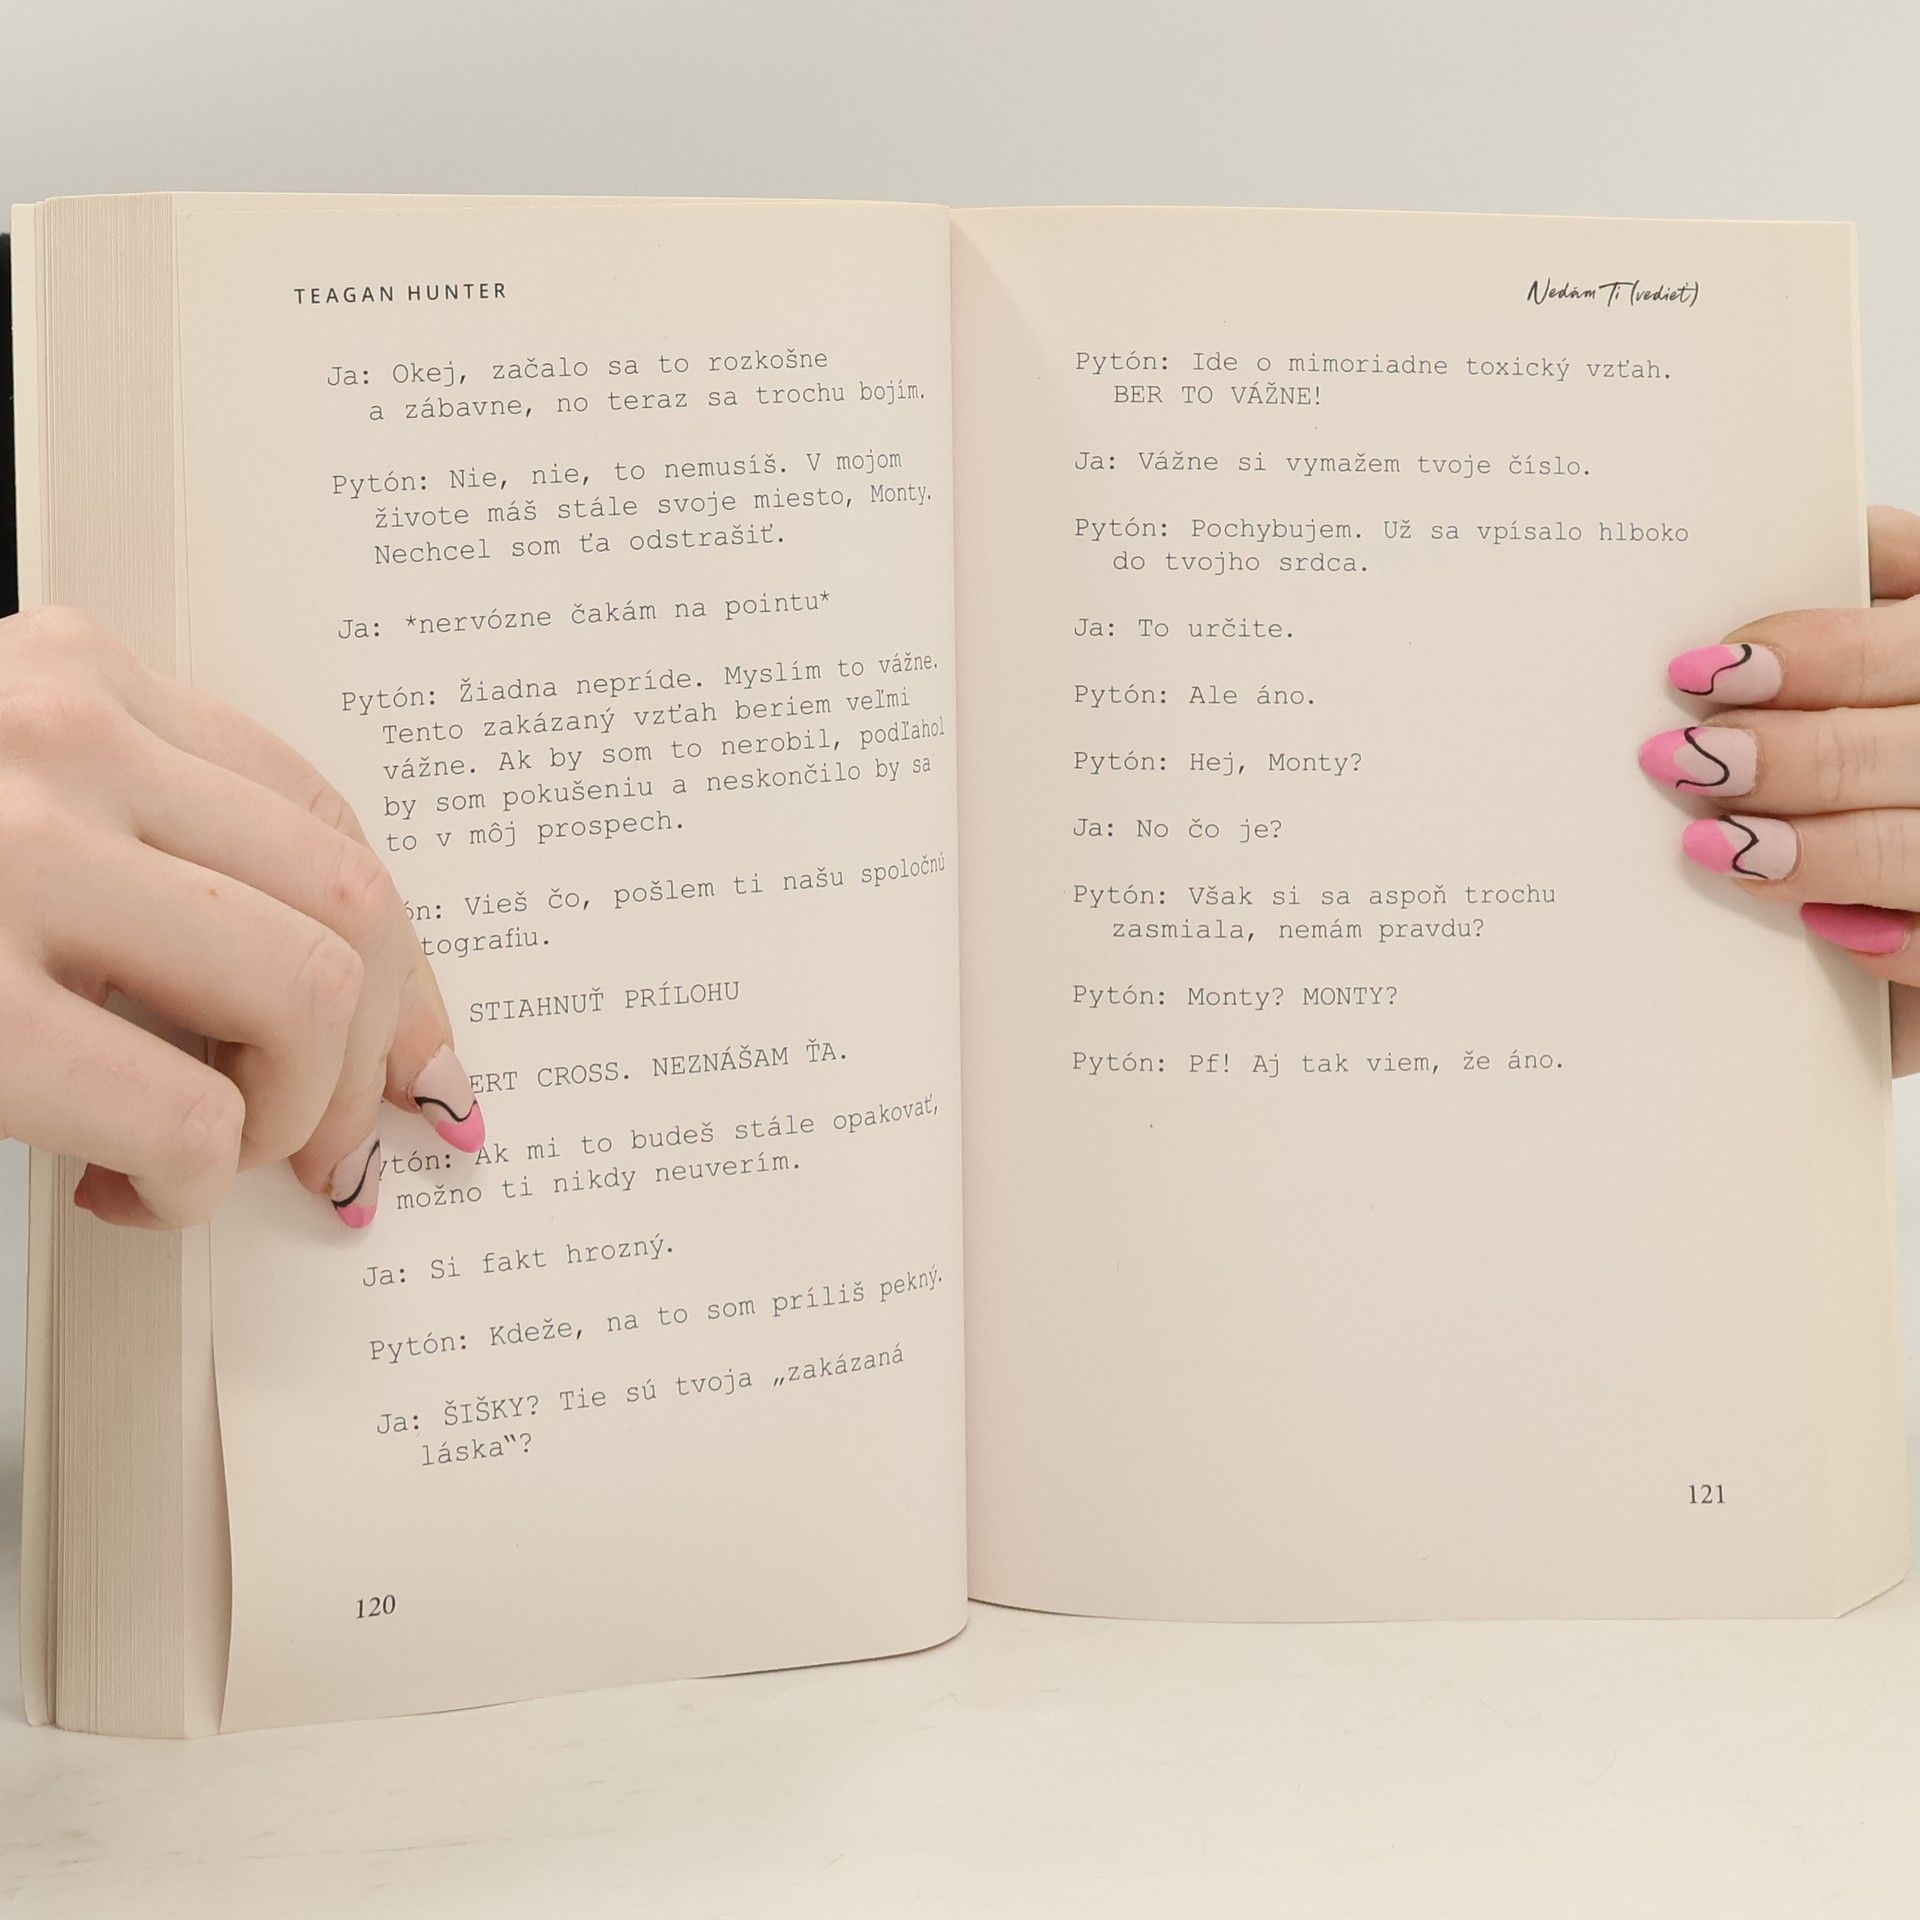 TEAGAN HUNTER
Ja: Okej, začalo sa to rozkošne
a zábavne, no teraz sa trochu bojím.
Pytón: Nie, nie, to nemusíš. V mojom
živote máš stále svoje miesto, Monty.
Nechcel som ťa odstrašiť.
Ja: *nervózne čakám na pointu*
Pytón: Žiadna nepríde. Myslím to vážne.
Tento zakázaný vzťah beriem veľmi
vážne. Ak by som to nerobil, podľahol
by som pokušeniu a neskončilo by sa
to v môj prospech.
ón: Vieš čo, pošlem ti našu spoločnú
tografiu.
STIAHNUŤ PRÍLOHU
ERT CROSS. NEZNÁŠAM ŤA.
ytón: Ak mi to budeš stále opakovať,
možno ti nikdy neuverím.
Ja: Si fakt hrozný.
Pytón: Kdeže, na to som príliš pekný.
Ja: ŠIŠKY? Tie sú tvoja „zakázaná
láska“?
120
Nedám Ti (vedieť)
Pytón: Ide o mimoriadne toxický vzťah.
BER TO VÁŽNE!
Ja: Vážne si vymažem tvoje číslo.
Pytón: Pochybujem. Už sa vpísalo hlboko
do tvojho srdca.
Ja: To určite.
Pytón: Ale áno.
Pytón: Hej, Monty?
Ja: No čo je?
Pytón: Však si sa aspoň trochu
zasmiala, nemám pravdu?
Pytón: Monty? MONTY?
Pytón: Pf! Aj tak viem, že áno.
121